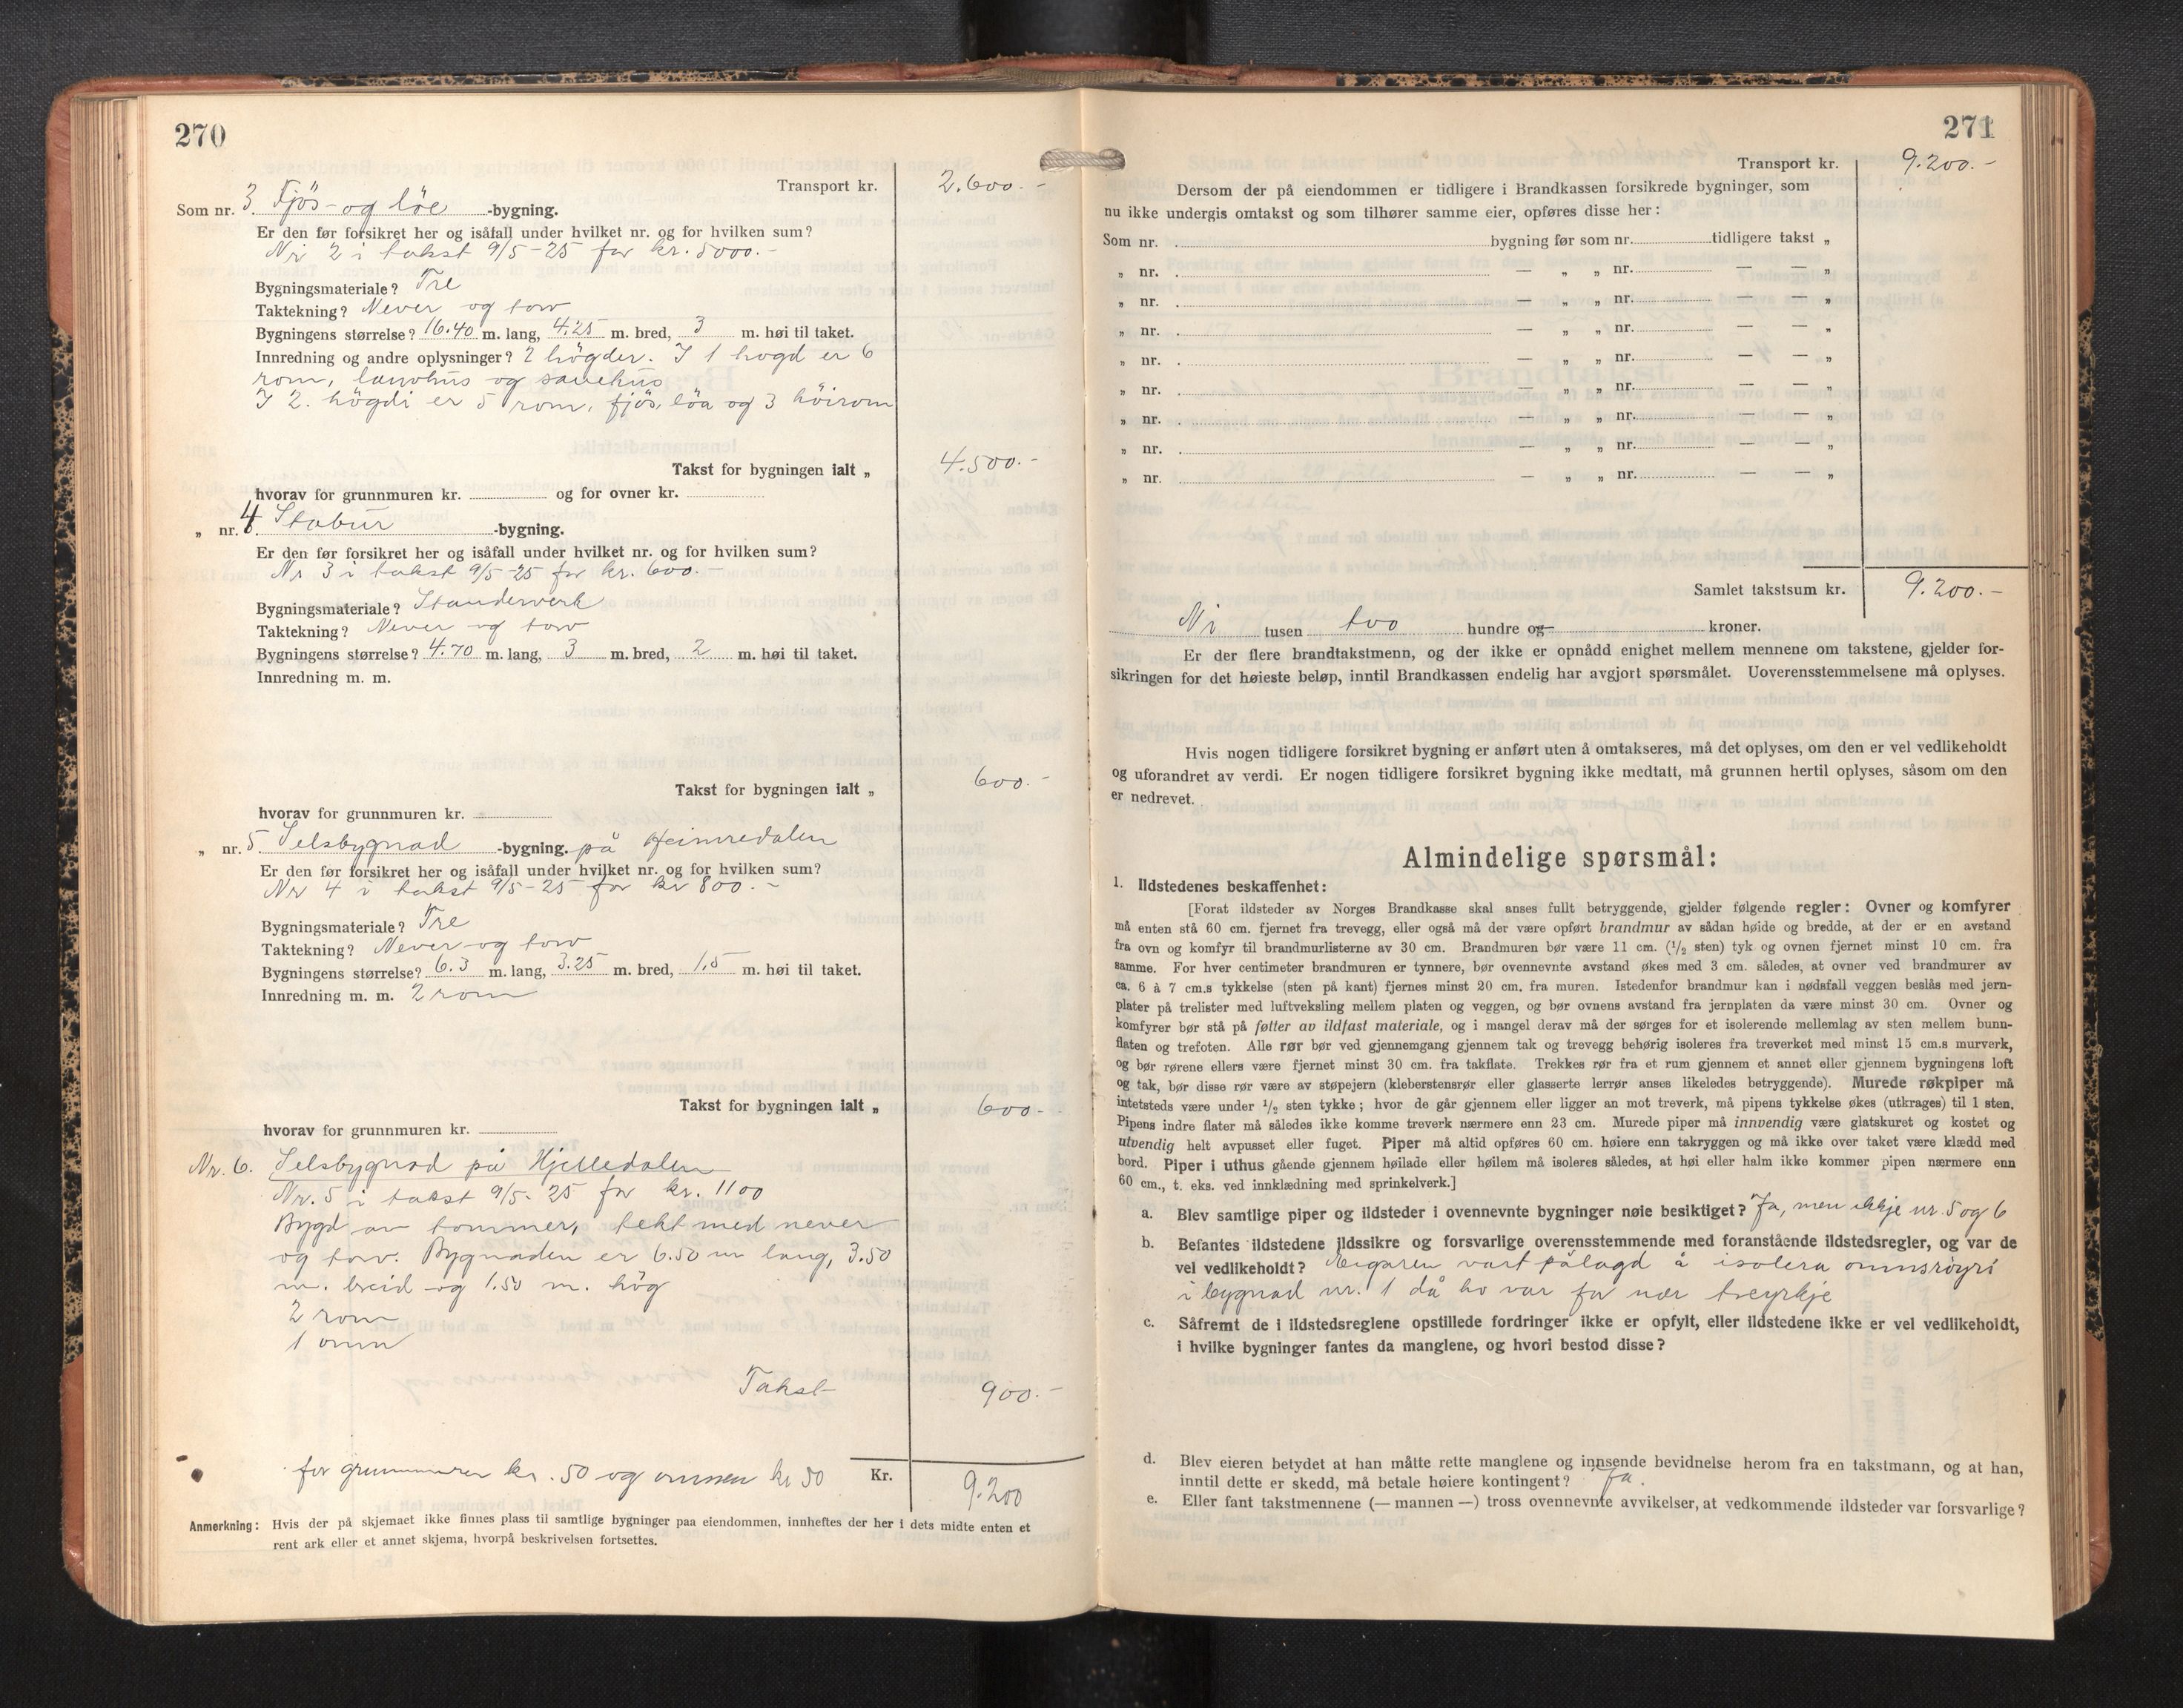 270
Transport kr. 2.600.-
Som nr. 3. Fjös- og löe -bygning.
Er den før forsikret her og isåfall under hvilket nr. og for hvilken sum?
Nr 2 i takst 9/5-25 for kr. 5000.-
Bygningsmateriale? Tre
Taktekning? Never og torv
Bygningens størrelse? 16.40 m. lang, 4.25 m. bred, 3 m. høi til taket.
Innredning og andre oplysninger? 2 högder. I 1 hogd er 6
rom, lauvhus og sauehus
I 2. högdi er 5 rom, fjös, löa og 3 höirom
Takst for bygningen ialt „ 4.500.-
hvorav for grunnmuren kr. og for ovner kr.
„ nr. 4 Stabur -bygning.
Er den før forsikret her og isåfall under hvilket nr. og for hvilken sum?
Nr 3 i takst 9/5-25 for kr. 600.-
Bygningsmateriale? Standerverk
Taktekning? Never og torv
Bygningens størrelse? 4.70 m. lang, 3 m. bred, 2 m. høi til taket.
Innredning m. m.
Takst for bygningen ialt „ 600.-
hvorav for grunnmuren kr.
„ nr. 5. Selsbygnad -bygning. på Heimredalen
Er den før forsikret her og isåfall under hvilket nr. og for hvilken sum?
Nr 4 i takst 9/5-25 for kr 800.-
Bygningsmateriale? Tre
Taktekning? Never og torv
Bygningens størrelse? 6.3 m. lang, 3.25 m. bred, 1,5 m. høi til taket.
Innredning m. m. 2 rom
Takst for bygningen ialt „ 600-
hvorav for grunnmuren kr.
Nr. 6. Selsbygnad på Hjelledalen
Nr. 5 i takst 9/5-25 for kr. 1100
Bygd av tommer, tekt med never
og torv. Bygnaden er 6.50 m lang, 3.50
m. breid og 1.50 m. hög
2 rom
1 omn
Takst 900.-
for grunnmuren kr. 50 og omnen kr 50 Kr. 9.200
Anmerkning: Hvis der på skjemaet ikke finnes plass til samtlige bygninger paa eiendommen, innheftes der her i dets midte enten et
rent ark eller et annet skjema, hvorpå beskrivelsen fortsettes.
271
Transport kr. 9.200.-
Dersom der på eiendommen er tidligere i Brandkassen forsikrede bygninger, som
nu ikke undergis omtakst og som tilhører samme eier, opføres disse her:
Som nr. bygning før som nr. tidligere takst „
„ nr. — „ „ nr. — — „
„ nr. — „ „ nr. — — „
„ nr. — „ „ nr. — — „
„ nr. — „ „ nr. — — „
„ nr. — „ „ nr. — — „
„ nr. — „ „ nr. — — „
„ nr. — „ „ nr. — — „
„ nr. — „ „ nr. — — „
Samlet takstsum kr. 9.200.-
Ni tusen tvo hundre og kroner.
Er der flere brandtakstmenn, og der ikke er opnådd enighet mellem mennene om takstene, gjelder for-
sikringen for det høieste beløp, inntil Brandkassen endelig har avgjort spørsmålet. Uoverensstemmelsene må oplyses.
Hvis nogen tidligere forsikret bygning er anført uten å omtakseres, må det oplyses, om den er vel vedlikeholdt
og uforandret av verdi. Er nogen tidligere forsikret bygning ikke medtatt, må grunnen hertil oplyses, såsom om den
er nedrevet.
Almindelige spørsmål:
1. Ildstedenes beskaffenhet:
[Forat ildsteder av Norges Brandkasse skal anses fullt betryggende, gjelder følgende regler: Ovner og komfyrer
må enten stå 60 cm. fjernet fra trevegg, eller også må der være opført brandmur av sådan høide og bredde, at der er en avstand
fra ovn og komfyr til brandmurlisterne av 30 cm. Brandmuren bør være 11 cm. (1/2 sten) tyk og ovnen fjernet minst 10 cm. fra
samme. For hver centimeter brandmuren er tynnere, bør ovennevnte avstand økes med 3 cm. således, at ovner ved brandmurer av
ca. 6 à 7 cm.s tykkelse (sten på kant) fjernes minst 20 cm. fra muren. Istedenfor brandmur kan i nødsfall veggen beslås med jern-
plater på trelister med luftveksling mellem platen og veggen, og bør ovnens avstand fra jernplaten da være minst 30 cm. Ovner og
komfyrer bør stå på føtter av ildfast materiale, og i mangel derav må der sørges for et isolerende mellemlag av sten mellem bunn-
flaten og trefoten. Alle rør bør ved gjennemgang gjennem tak og trevegg behørig isoleres fra treverket med minst 15 cm.s murverk,
og bør rørene ellers være fjernet minst 30 cm. fra takflate. Trekkes rør fra et rum gjennem et annet eller gjennem bygningens loft
og tak, bør disse rør være av støpejern (kleberstensrør eller glasserte lerrør anses likeledes betryggende). Murede røkpiper må
intetsteds være under 1/2 sten tykke; hvor de går gjennem eller ligger an mot treverk, må pipens tykkelse økes (utkrages) til 1 sten.
Pipens indre flater må således ikke komme treverk nærmere enn 23 cm. Murede piper må innvendig være glatskuret og kostet og
utvendig helt avpusset eller fuget. Piper må altid opføres 60 cm. høiere enn takryggen og må ikke over taket være klædd med
bord. Piper i uthus gående gjennem høilade eller høilem må isoleres således, at høi eller halm ikke kommer pipen nærmere enn
60 cm., t. eks. ved innklædning med sprinkelverk.]
a. Blev samtlige piper og ildsteder i ovennevnte bygninger nøie besiktiget? Ja, men ikkje nr. 5 og 6
b. Befantes ildstedene ildssikre og forsvarlige overensstemmende med foranstående ildstedsregler, og var de
vel vedlikeholdt? Eigaren vart pålagd å isolera omnsröyri
i bygnad nr. 1 då ho var for nær treyrkje
c. Såfremt de i ildstedsreglene opstillede fordringer ikke er opfylt, eller ildstedene ikke er vel vedlikeholdt,
i hvilke bygninger fantes da manglene, og hvori bestod disse?
d. Blev eieren betydet at han måtte rette manglene og innsende bevidnelse herom fra en takstmann, og at han,
inntil dette er skedd, må betale høiere kontingent? Ja.
e. Eller fant takstmennene (— mannen —) tross ovennevnte avvikelser, at vedkommende ildsteder var forsvarlige?